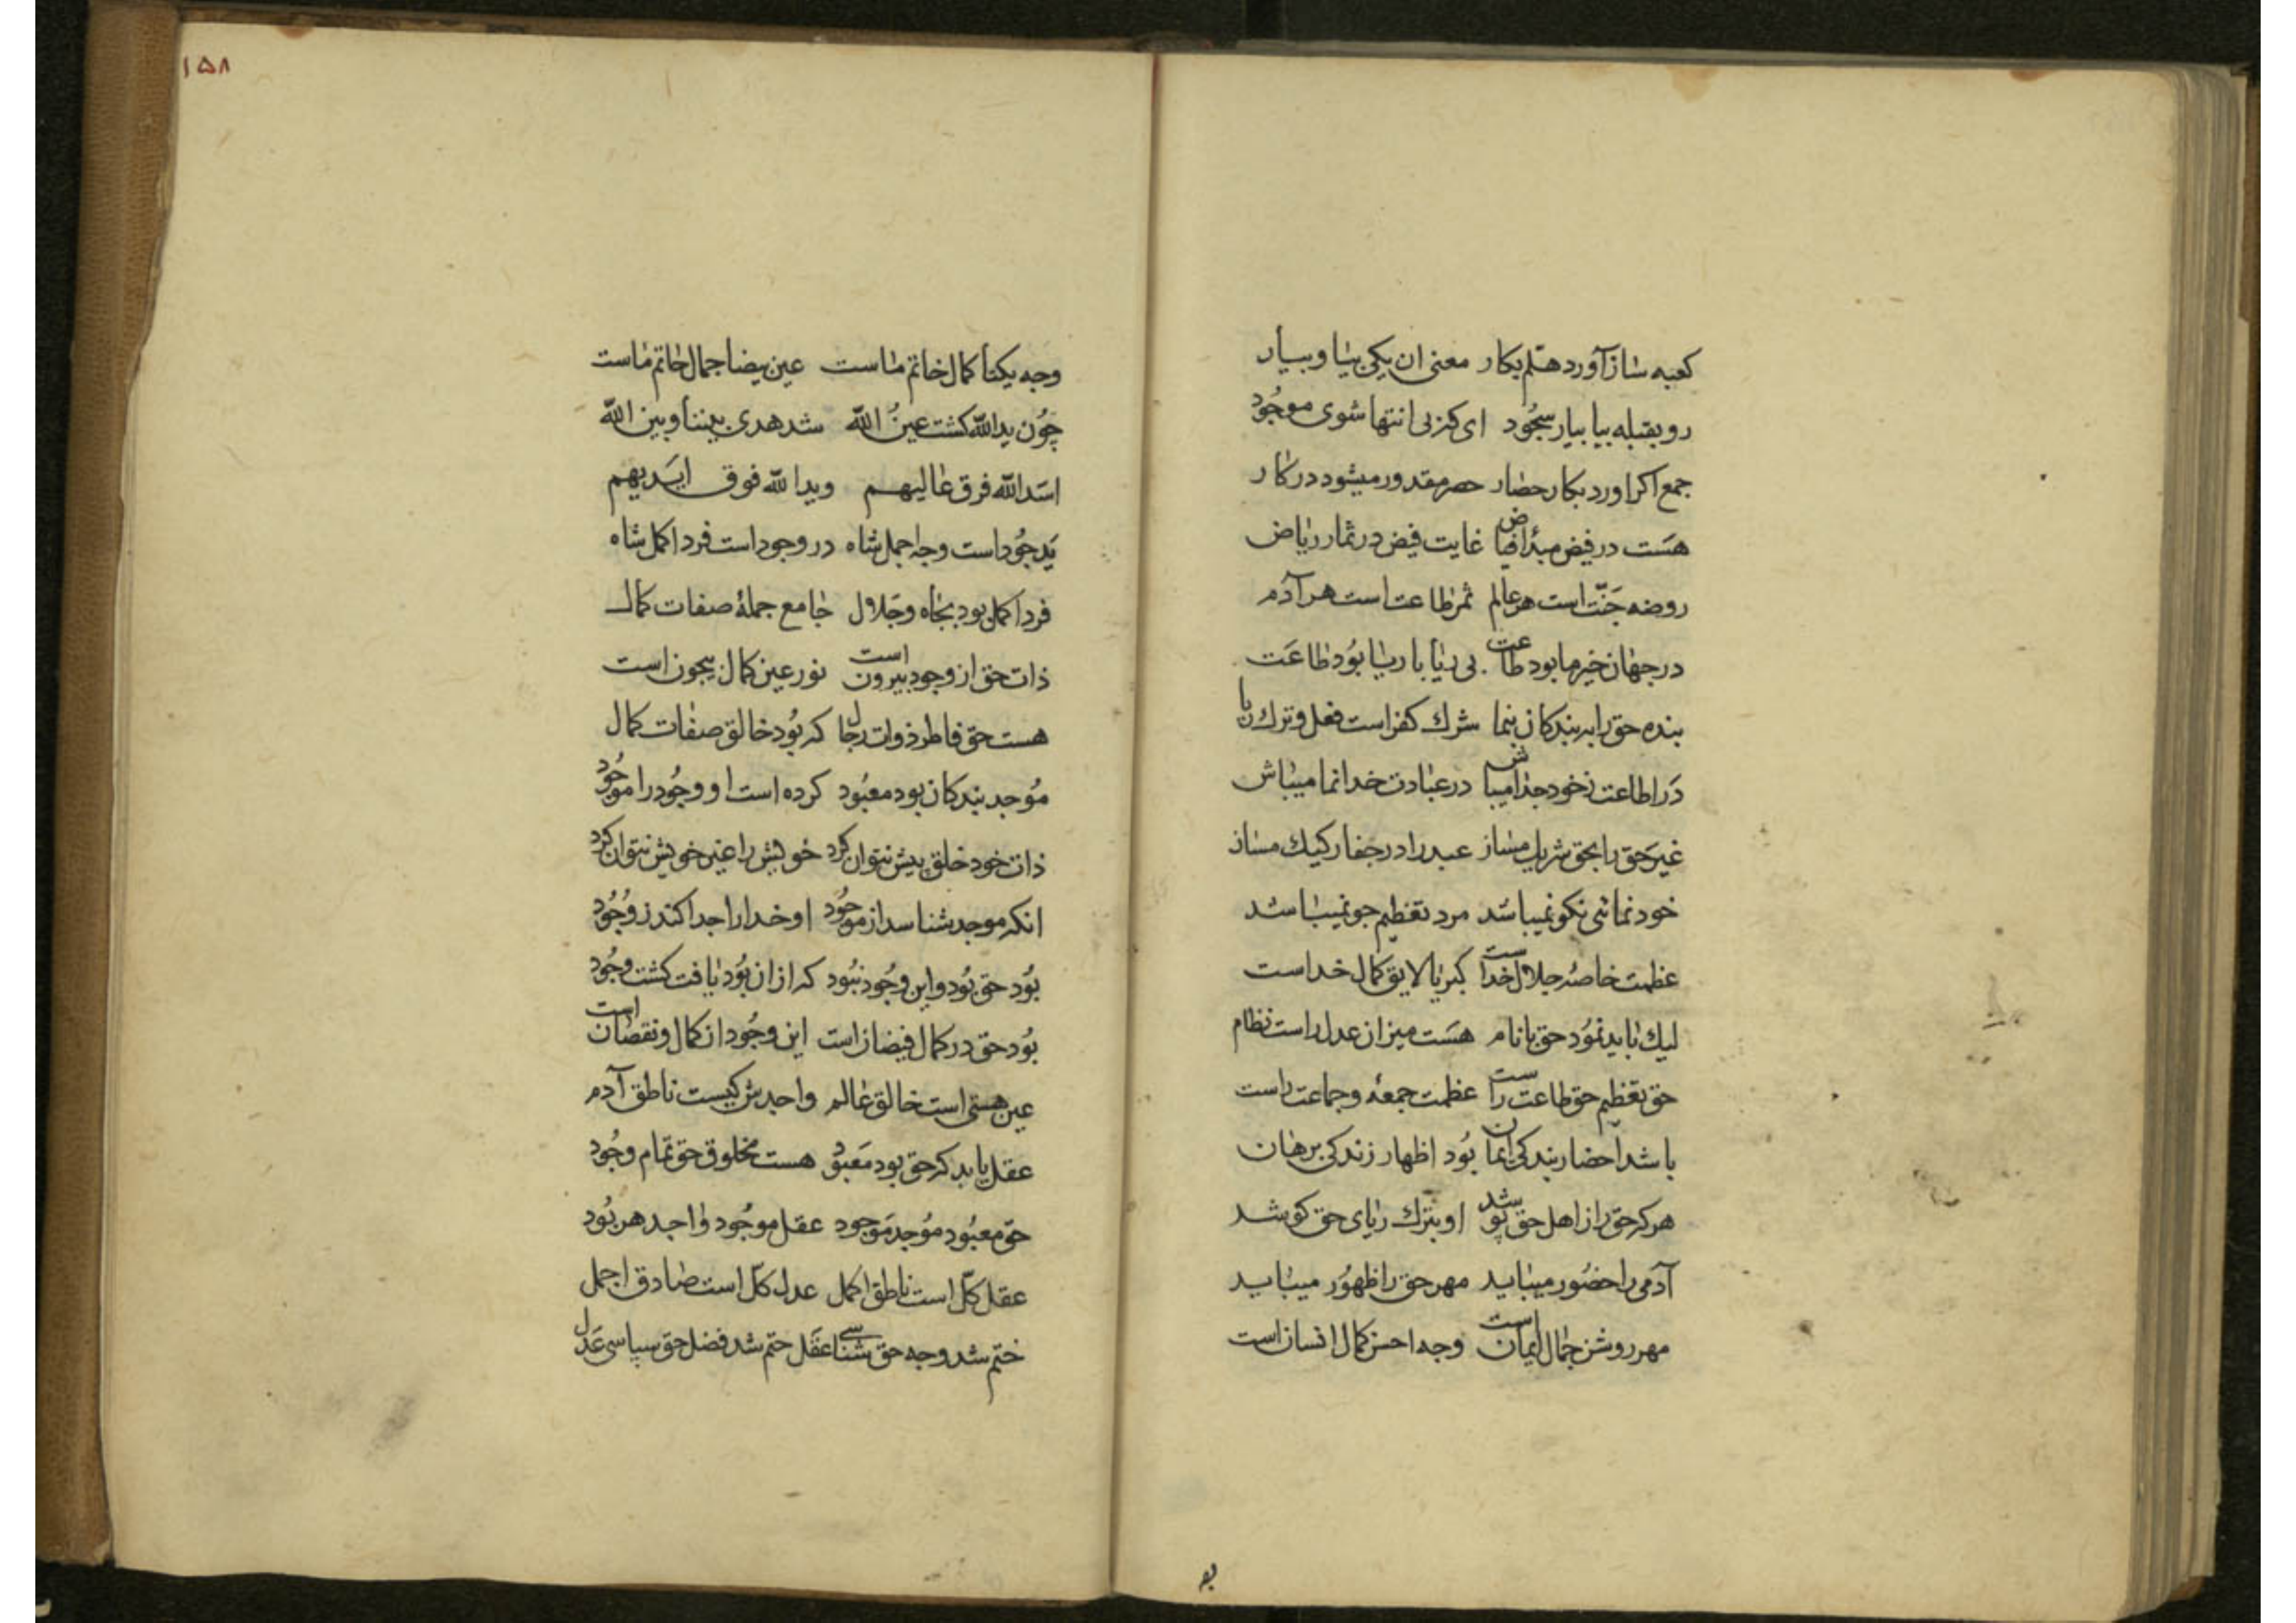 کعبه ساز آورد هلم بکار معنی ان یکی بیا و بیار
رو بقبله بیا بیار سجُود ای کزین انتها شوی موجُود
جمع اکر اورد بکار حضار حصر مقدور میشود در کار
هسَت در فیض مبدأ فیاض غایت فیض در ثمار ریاض
روضه جَنّت است هر عالم ثمر طاعت است هر آدم
در جهان خیر ما بود طاعت بی ریا با ریا بوُد طاعَت
بنده حق را به بندکان بنما شرك کفر است فعل و ترك ریا
دَر اطاعت زخود جدا میباش در عبادت خدا نما میباش
غیرَ حق را بحق شریك مساز عبد را در جفا رکیك مساز
خود نمائی نکو نمیباشد مرد تعظیم جو نمیباشد
عظمت خاصهٔ جلال خداست کبریا لایق کمال خداست
لیك باید نموُد حق با نام هسَت میزان عدل راست نظام
حق تعظیم حق طاعت راست عظمت جمعه و جماعت راست
باشد احضار بندکی ایمان بوُد اظهار زندکی برهان
هر که حق را ز اهل حق پوشد او بترك ریای حق کوشد
آدمی را حضوُر میباید مهر حق را ظهوُر میباید
مهر روشن جمال ایمان است وجه احسن کمال انسان است
بو
۱۵۸
وجه یکتا کمال خاتم ماست عین بیضا جمال خاتم ماست
چوُن یدالله کشت عینُ الله شد هدی بیننا و بین الله
اسَدالله فرق عالیهم ویدالله فوق ایَدیهم
یَد جوُد است وجه اجمل شاه در وجود است فرد اکمل شاه
فرد اکمل بود بجاه وجَلال جامع جملهٔ صفات کمال
ذات حق از وجود بیرون است نور عین کمال بیچون است
هست حق فاطر ذوات رجال که بوُد خالق صفات کمال
موُجد بندکان بود معبُود کرده است او وجوُد را موجُود
ذات خود خلق پیش نتوان کرد خویش را غیر خویش نتوان کرد
انکه موجد شناسد از موجُود او خدا را جدا کند ز وجُود
بوُد حق بوُد و این وجُود نبُود که از ان بوُد یافت کشت وجُود
بوُد حق در کمال فیضان است این وجُود از کمال و نقصان است
عین هستی است خالق عالم واحدش کیست ناطق آدم
عقل یابد که حق بود معَبوُد هست مخلوق حق تمام وجُود
حق معبُود موُجد موَجود عقل موجُود واجد هر بوُد
عقل کلّ است ناطق اکمل عدل کلّ است صادق اجمل
ختم شد وجه حق شناسی عقَل ختم شد فضل حق سپاسی عَدل